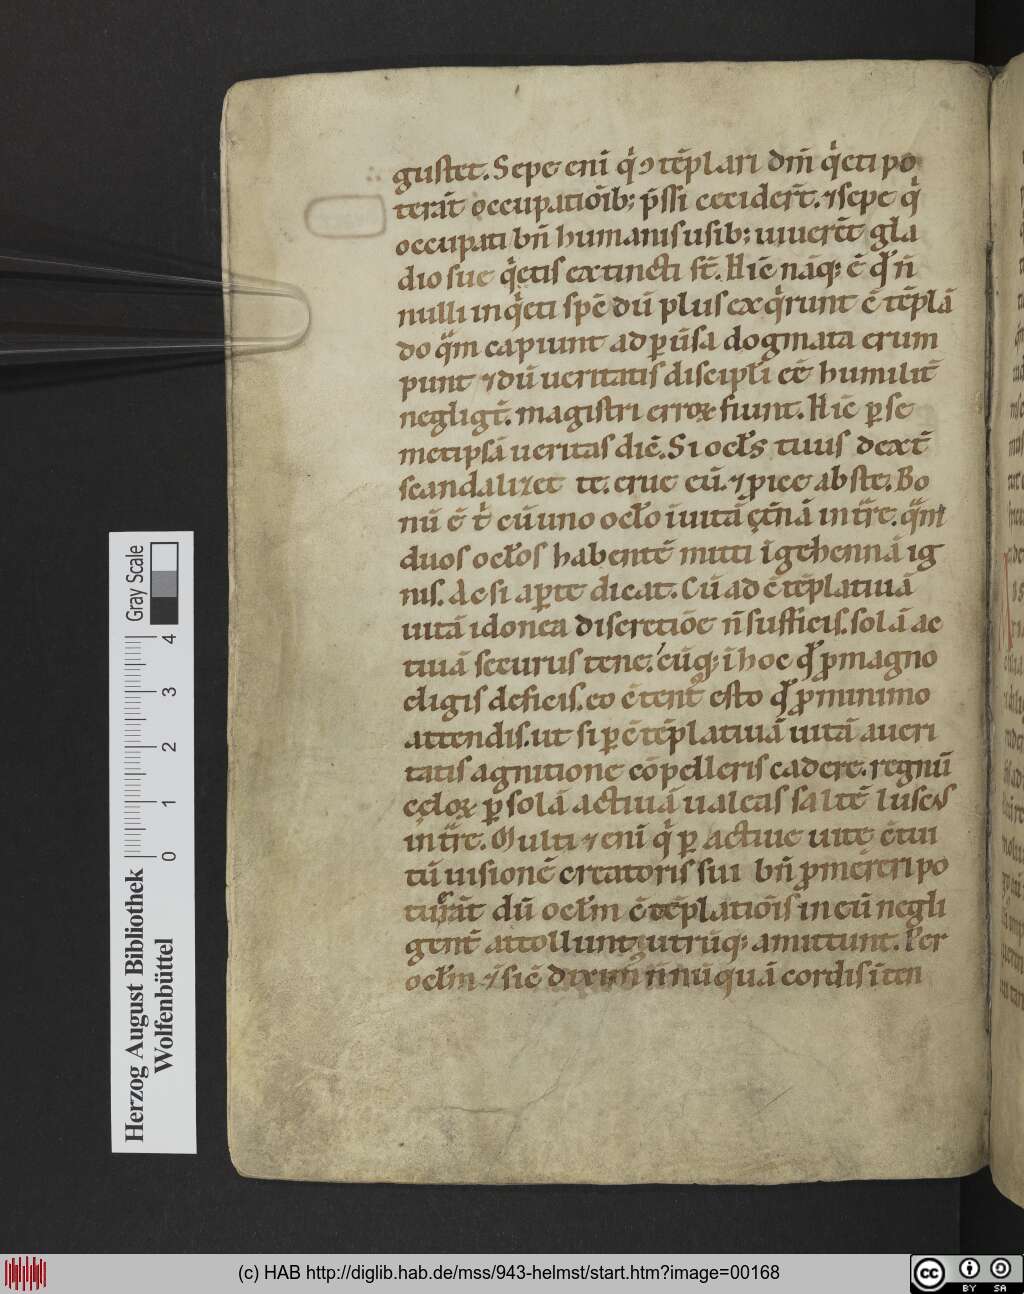 gustet. Sepe eni̅ qͥ ꝯte̅plari dm̅ qͥeti po
tera̅t occupatio̅ib; p̅ssi cecider̅t. ⁊ sepe qͥ
occupati bn̅ humanis usib; uiuere̅t gla
dio sue qͥetis extincti st̅. Hic̅ na̅q; e̅ qđ n̅
nulli in qͥeti spe̅ du̅ plus exqͥrunt c̅te̅pla̅
do qᷓm capiunt ad ꝑu̅sa dogmata erum
punt ⁊ du̅ ueritatis discipłi ee̅ humilit̅
negligt̅. magistri erroꝝ fiunt. Hic̅ ꝑ se
metipsa̅ ueritas dic̅. Si ocłs tuus dext̅
scandalizet te. erue eu̅. ⁊ ꝓice abs te. Bo
nu̅ e̅ tͥ cu̅ uno ocło i̅ uita̅ ęt̅na̅ intᷓre. qᷓm
duos ocłos habente̅ mitti i̅ gehenna̅ ig
nis. Ac si aꝑte dicat. Cu̅ ad c̅te̅platiua̅
uita̅ idonea discretio̅e n̅ sufficis. sola̅ ac
tiua̅ securus tene. cu̅q; i̅ hoc qđ ꝓ magno
eligis deficis. eo c̅tent᷒ esto qđ ꝓ minimo
attendis. ut si ꝑ c̅te̅platiua̅ uita̅ a ueri
tatis agnitione co̅pelleris cadere. regnu̅
cęloꝝ ꝑ sola̅ actiua̅ ualeas salte̅ luscus
intᷓre. Multi ⁊eni̅ qͥ ꝑ actiue uite̅ c̅tui
tu̅ uisione̅ creatoris sui bn̅ ꝓmereri po
tura̅t du̅ ocłm c̅te̅platio̅is in eu̅ negli
gent̅ attollunt; utru̅q; amittunt. Per
ocłm ⁊ sic̅ diximus n̅ nu̅qua̅ cordis i̅ten
Herzog August Bibliothek
Wolfenbüttel
Gray Scale
0 1 2 3 4
(c) HAB http://diglib.hab.de/mss/943-helmst/start.htm?image=00168
cc BY SA